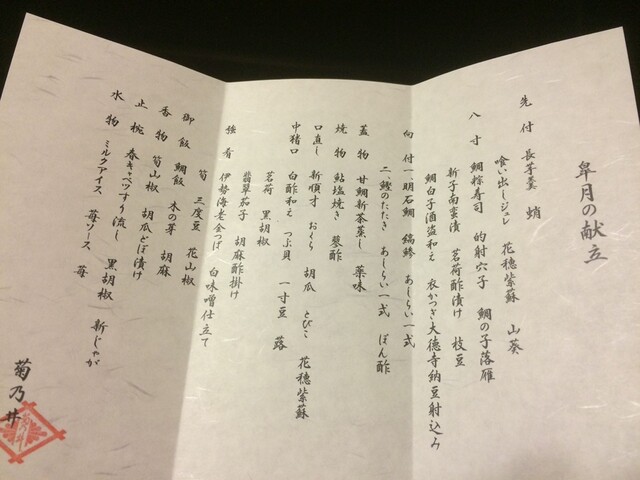 皐月の献立
先付 長芋羹 蛸
喰い出しジュレ 花穂紫蘇 山葵
八寸 鯛粽寿司 的射穴子 鯛の子落雁
新子南蛮漬 茗荷酢漬け 枝豆
鯛白子酒盗和え 衣かつぎ大徳寺納豆射込み
向付 一、明石鯛 鏑鯵 あしらい一式
二、鰹のたたき あしらい一式 ぽん酢
蓋物 甘鯛新茶蒸し 薬味
焼物 鮎塩焼き 蓼酢
口直し 新順才 おくら 胡瓜 とびこ 花穂紫蘇
中猪口 白酢和え つぶ貝 一寸豆 蕗
茗荷 黒胡椒
翡翠茄子 胡麻酢掛け
強肴 伊勢海老金つば 白味噌仕立て
筍 三度豆 花山椒
御飯 鯛飯 木の芽 胡麻
香物 筍山椒 胡瓜どぼ漬け
止椀 春キャベツすり流し 黒胡椒 新じゃが
水物 ミルクアイス 苺ソース 苺
菊乃井